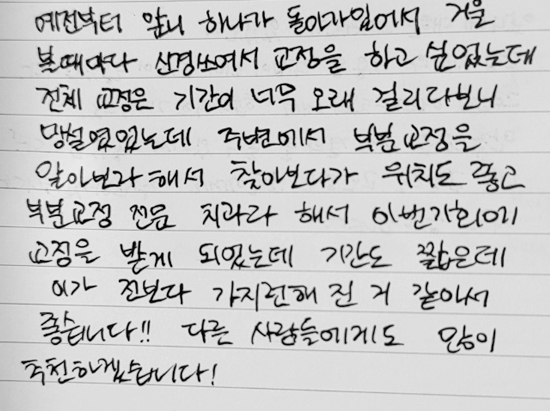 예전부터 앞니 하나가 돌아가있어서 거울
볼때마다 신경쓰여서 교정을 하고 싶었는데
전체 교정은 기간이 너무 오래 걸리다보니
망설였었는데 주변에서 부분교정을
알아보라 해서 찾아보다가 위치도 좋고
부분교정 전문 치과라 해서 이번기회에
교정을 받게 되었는데 기간도 짧은데
이가 전보다 가지런해 진 거 같아서
좋습니다!! 다른 사람들에게도 많이
추천하겠습니다!